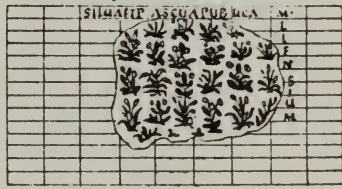 SILUAETP ASCUAPUB LICA M·
LIENSIUM